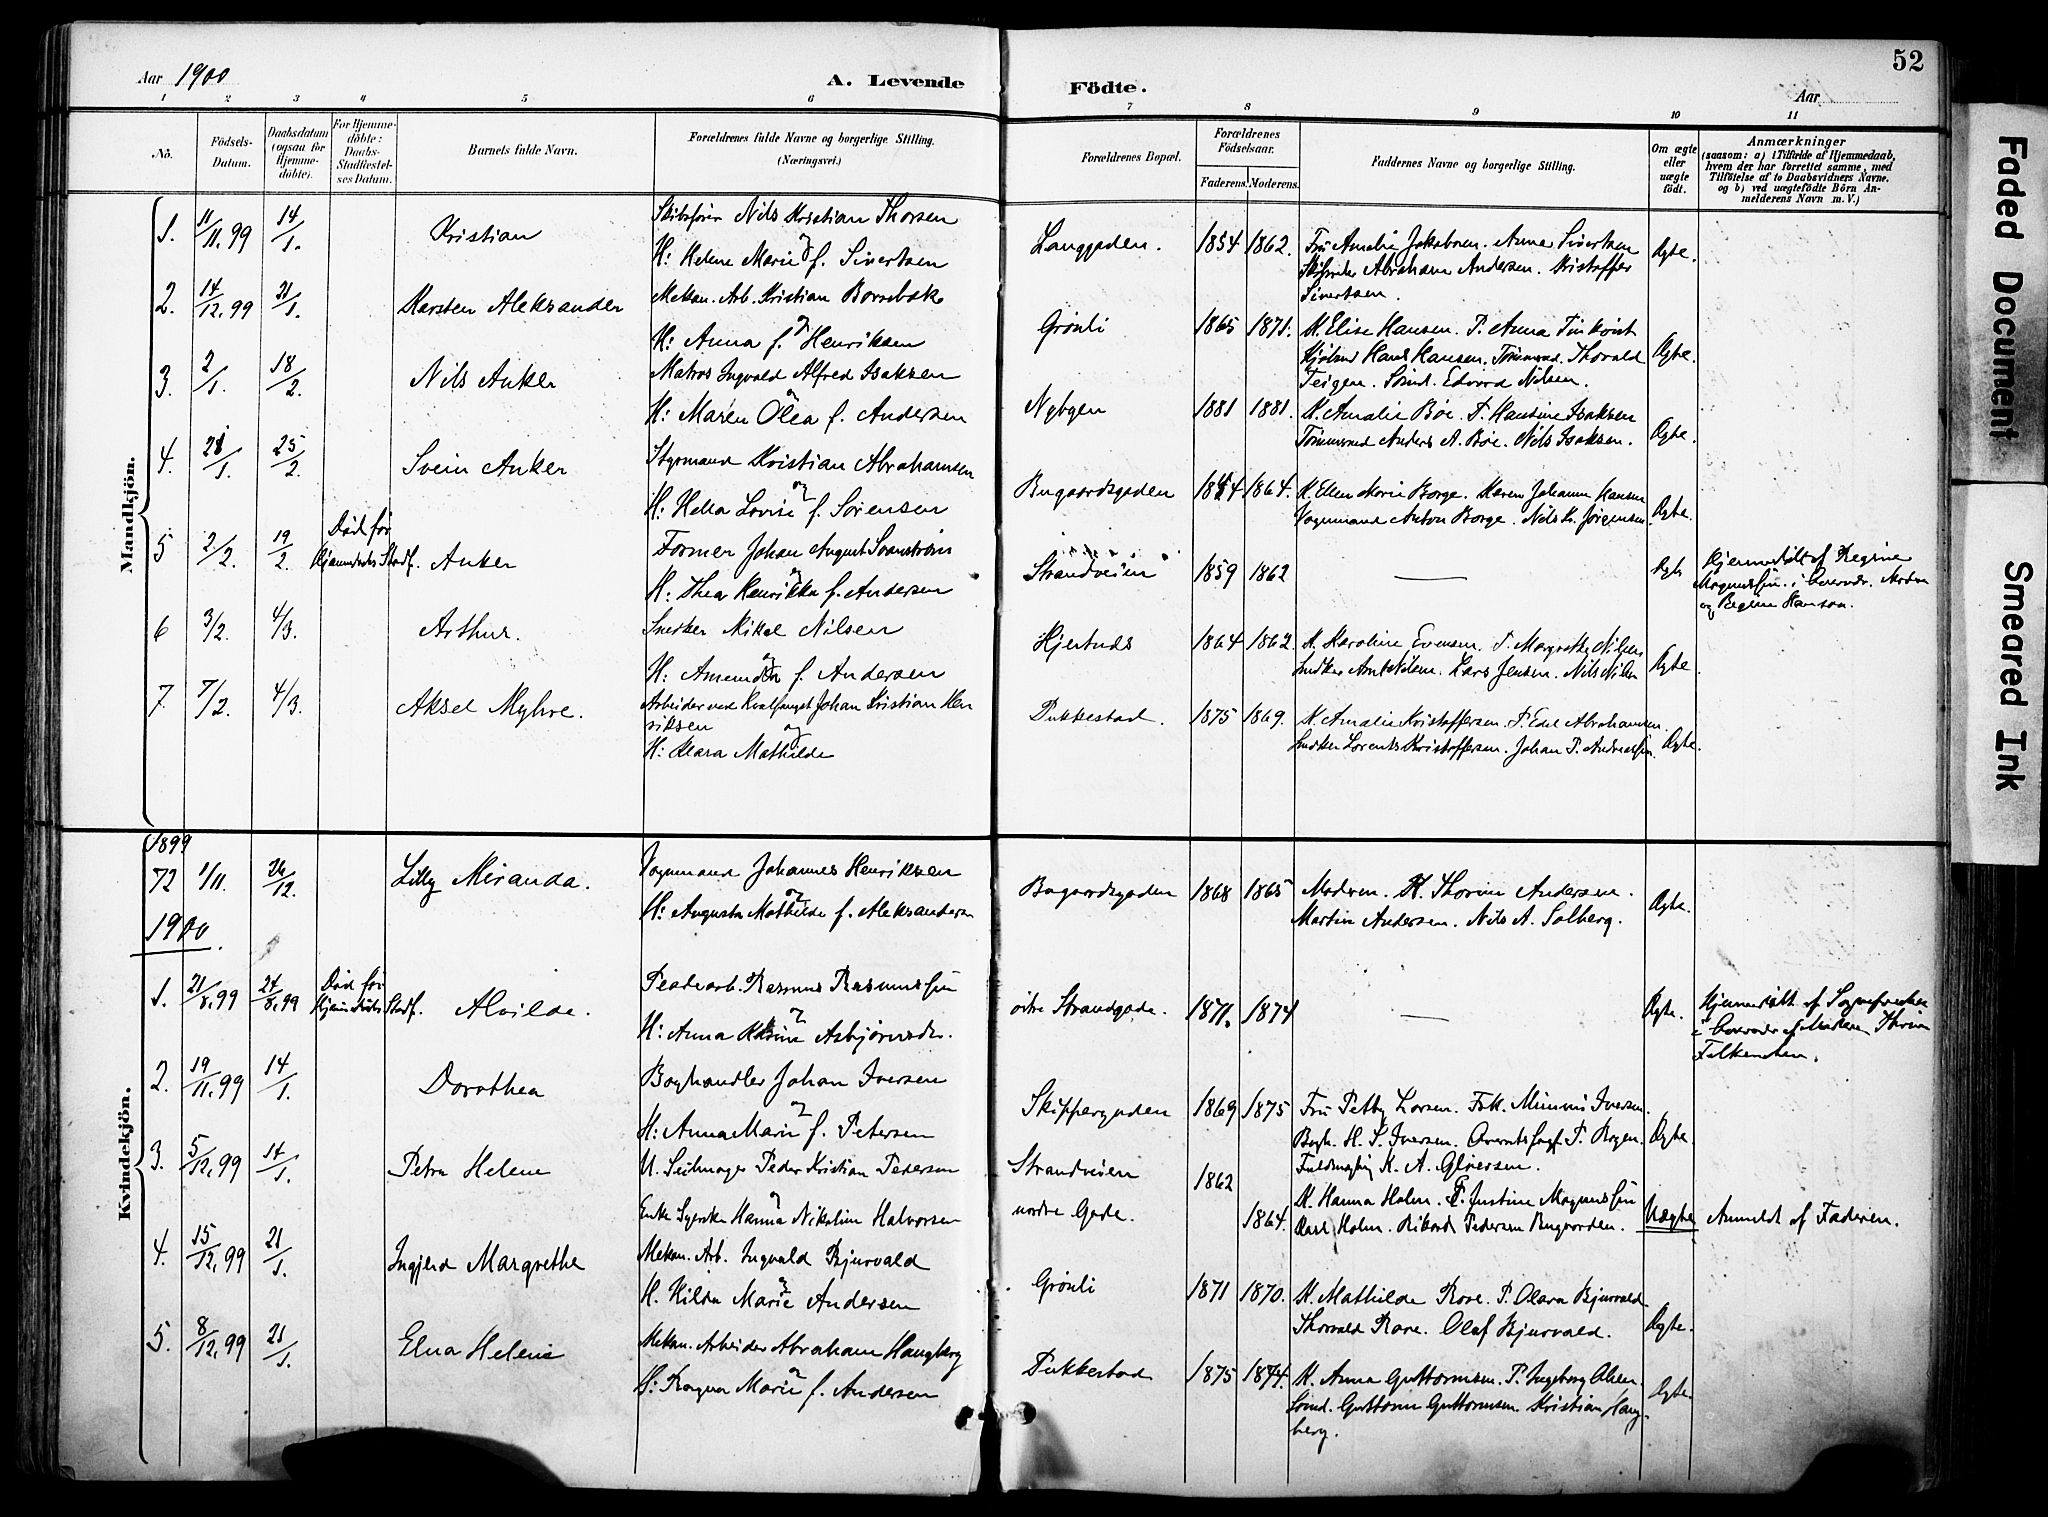 52
Aar 1900
A. Levende
Födte.
Aar
1 2 3 4 5 6 7 8 9 10 11
No.
Födsels-Datum.
Daabsdatum (ogsaa for Hjemme-döbte).
For Hjemme-döbte: Daabs-Stadfæstel-ses Datum.
Barnets fulde Navn.
Forældrenes fulde Navne og borgerlige Stilling.
(Næringsvei.)
Forældrenes Bopæl.
Forældrenes Födselsaar.
Faderens. Moderens.
Faddernes Navne og borgerlige Stilling.
Om ægte eller uægte födt.
Anmærkninger
(saasom: a) i Tilfælde af Hjemmedaab,
hvem der har forrettet samme, med
Tilföielse af to Daabsvidners Navne.
og b) ved uægtefödte Börn An-
melderens Navn m. V.)
Mandkjön.
1. 11/11.99 14/1. Kristian
Skibsfører Nils Kristian Thorsen
og
H: Helene Marie f. Sivertsen
Langgaden. 1854 1862.
Fru Amalie Jakobsen. Anna Sivertsen
Skibsreder Abraham Andersen. Kristoffer
Sivertsen.
Ægte.
2. 14/12.99 21/1. Karsten Aleksander
Mekan. Arb. Kristian Borrebæk
og
H: Anna f. Henriksen
Grönli 1865 1871.
K. Elise Hansen. P. Anna Finkvist
Hans Hansen. Tömmermd. Thorvald
Teigen. Sömd. Edvard Nilsen.
Ægte.
3. 2/1. 18/2. Nils Anker
Matros Ingvald Alfred Isaksen
og
H: Maren Olea f. Andersen
Nybyen 1881 1881.
K. Amalie Böe. P. Hansine Isaksen
Tömmermd Anders A. Böe. Nils Isaksen.
Ægte.
4. 28/1. 25/2. Svein Anker
Styrmand Kristian Abrahamsen
og
H: Hella Lovise f. Sörensen
Bugaardsgaden 1864.
K. Ellen Marie Borge. Karen Johanne Hansen
Vognmand Anton Borge. Nils K. Jörgensen.
Ægte.
5 2/2. 19/2. Död før Hjemmedaabs Stadf. Anker
Former Johan August Svanström
og
H: Thea Henrikka f. Andersen
Strandveien 1859 1862
—
Ægte
Hjemmedöbt af Regine
Magnussen i Overvær. Moderen
og Regine Hanson.
6 3/2. 4/3. Arthur.
Snedker Mikal Nilsen
og
H: Amunda f. Andersen
Hjertnes 1864 1862.
K. Karoline Evensen. P. Margrethe Nilsen
Snedker Amt Nilsen. Lars Jensen. Nils Nilsen
Ægte.
7. 7/2. 4/3. Aksel Myhre.
Arbeider ved Hvalfangst Johan Kristian Hen
riksen og
H: Klara Mathilde
Pukkestad. 1875 1869.
K. Amalie Kristoffersen. P. Edel Abrahamsen.
Snedker Lorents Kristoffersen. Johan P. Andreassen.
Ægte.
Kvindekjön.
1899
72 1/11. 26/12. Lilly Miranda.
Vognmand Johannes Henriksen
og
H: Augusta Mathilde f. Aleksandersen
Bugaardsgaden 1868 1865
Moderen. K. Thorine Andersen.
Martin Andersen. Nils A. Solberg.
Ægte.
1900.
1. 21/8.99 24/8.99 Död før Hjemmedaabs Stadf. Alvilde.
Pladsarb. Rasmus Rasmussen
og
H: Anna Karine Asbjörnsdr.
östre Strandgade. 1871. 1874
—
Ægte.
Hjemmedöbt af Sognepresten
i Overvær af Moderen Thorine
Falkensten.
2. 19/11.99 14/1. Dorothea
Boghandler Johan Iversen
og
H: Anna Marie f. Petersen
Skippergaden 1869 1875
Fru Petty Larsen. Frk. Mimmi Iversen.
Bogh. H. S. Iversen. P. Bogen.
Fuldmægtig K. A. Gliersen.
Ægte.
3. 5/12.99 14/1. Petra Helene
U. Seilmager Peder Kristian Pedersen
og
Enke Syerske Hanna Nikoline Halvorsen
Strandveien 1862
nordre Gade. 1864.
K. Hanna Holm. P. Justine Magnussen
Karl Holm. Rikard Pedersen Bugaarden.
Uægte
Anmeldt af Faderen.
4. 15/12.99 21/1. Ingjerd Margrethe
Mekan. Arb. Ingvald Bjurvald
og
H. Hilda Marie Andersen
Grönli 1871 1870.
K. Mathilde Rove. P. Olava Bjurvald
Thorvald Rove. Olaf Bjurvald.
Ægte.
5. 8/12.99 21/1. Elna Helene
Mekan. Arbeider Abraham Haugberg
og
H: Ragna Marie f. Andersen
Pukkestad 1875 1874.
K. Anna Guttormsen. P. Ingeborg Olsen.
Sömd. Guttorm Guttormsen. Kristian Haug-
berg.
Ægte.
Faded Document
Smeared Ink